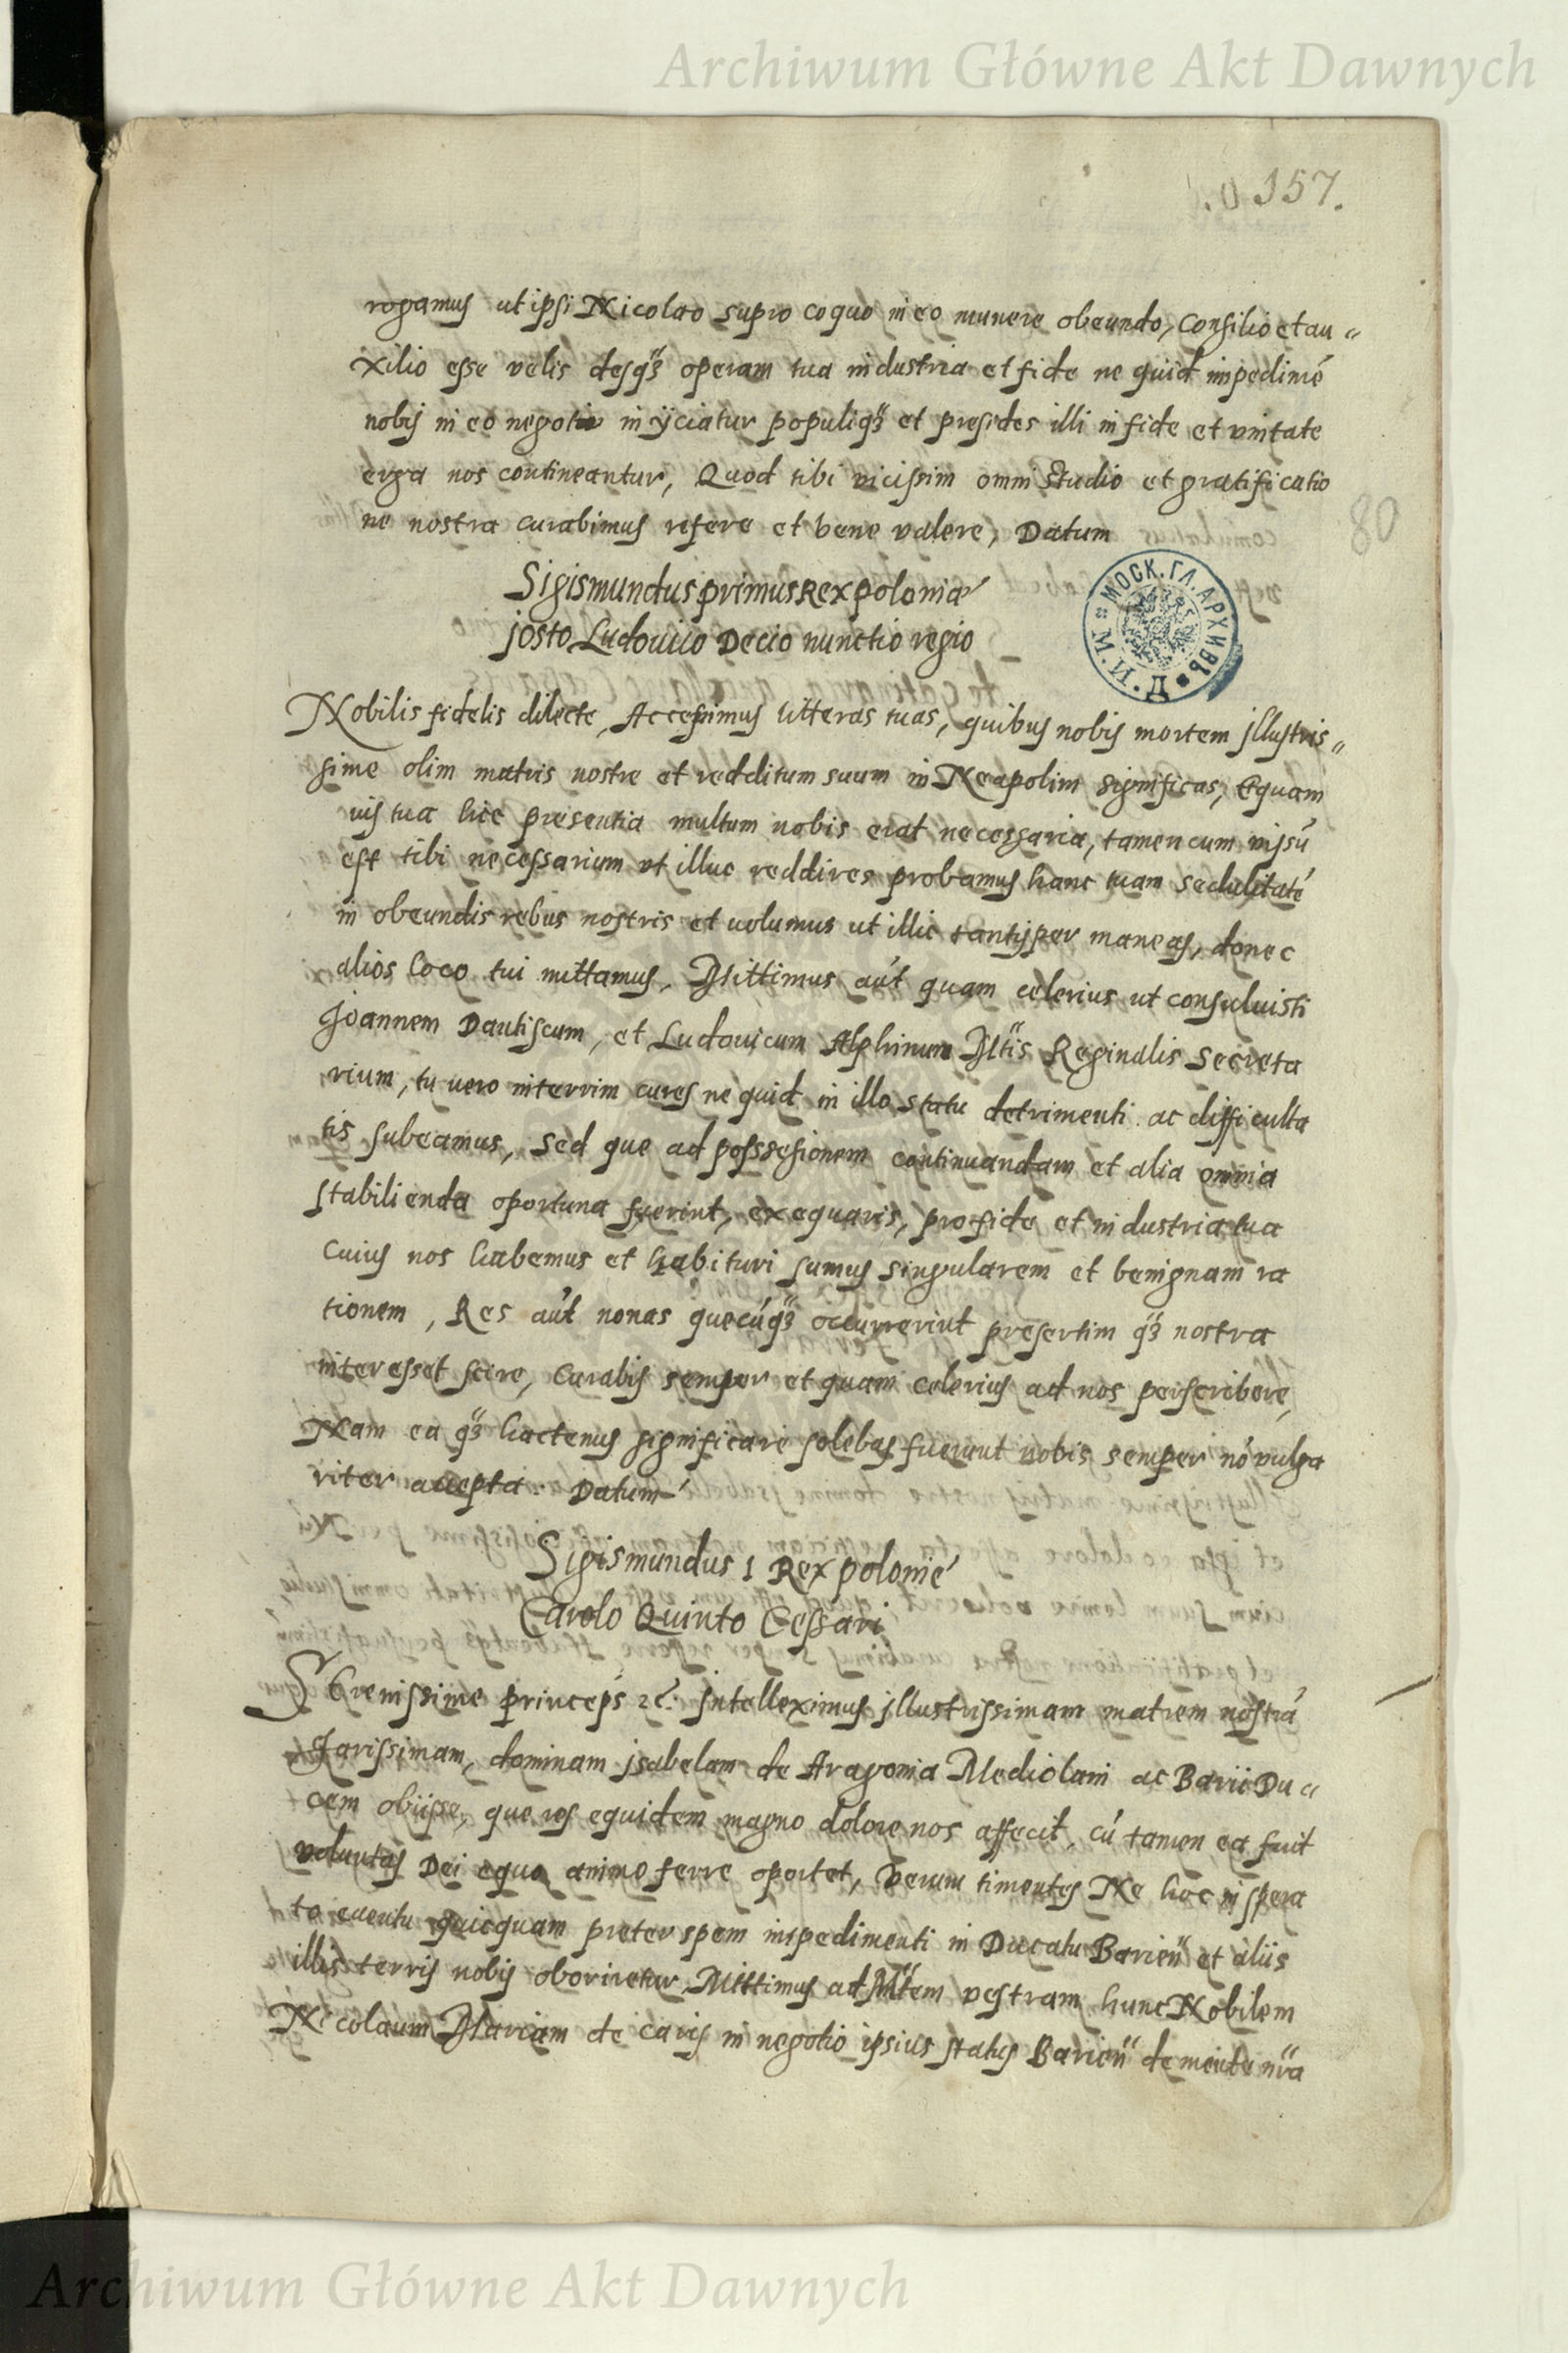 Archiwum Główne Akt Dawnych
157.
rogamus ut ipsi Nicolao supro coquo in eo munere obeundo, Consilio et au〃
xilio esse velis desqȝ operam tua industria et fide ne quid impedimē
nobis in eo negotio inijciatur populiqȝ et presides illi in fide et vnitate
erga nos contineantur, Quod tibi vicissim omni studio et gratificatio
ne nostra curabimus refere et bene valere, Datum
80
Sigismundus primus Rex poloniæ
josto Ludouico Decio nunctio regio
МОСК. ГЛ. АРХИВЪ М. И. Д.
Nobilis fidelis dilecte, Accepimus litteras tuas, quibus nobis mortem jllustris〃
sime olim matris nostre et redditum suum in Neapolim significas, Equam
uis tua hic presentia multum nobis erat necessaria, tamen cum visū
est tibi necessarium vt illuc reddires probamus hanc tuam sedulitatē
in obeundis rebus nostris et uolumus ut illic tantisper maneas, donec
alios loco tui mittamus, Mittimus aūt quam celerius ut consuluisti
Joannem Dantiscum, et Ludouicum Alphinum Mtis Reginalis Secreta
rium, tu uero interrim cures ne quid in illo statu detrimenti ac difficulta
tis subeamus, sed que ad posssesionem continuandam et alia omnia
stabilienda oportuna fuerint, exequaris, pro fide et industria tua
cuius nos habemus et habituri sumus singularem et benignam ra
tionem, Res aūt nonas quecūqȝ occurrerint presertim qȝ nostra
interesset scire, Curabis semper et quam celerius ad nos perscribere,
Nam ea qȝ hactenus significare solebas fuerunt nobis semper nō vulga
riter accepta. Datum
Sigismundus 1 Rex polonie
Carolo Quinto Cessari
SErenissime princeps ⁊c. jntelleximus jllustrissimam matrem nostrā
Carissimam, dominam jsabelam de Aragonia Mediolani ac Barii Du〃
cem obiisse, que res equidem magno dolore nos affecit, cū tamen ea fuit
voluntas Dei equo animo ferre oportet, verum timentes Ne hoc inspera
to euentu quicquam preter spem inspedimenti in Ducatu Barien et aliis
illis terris nobis oboriretur Mittimus ad Mtem vestram hunc Nobilem
Nicolaum Mariam de caris in negotio ipsius status Barien de mente nra
Archiwum Główne Akt Dawnych